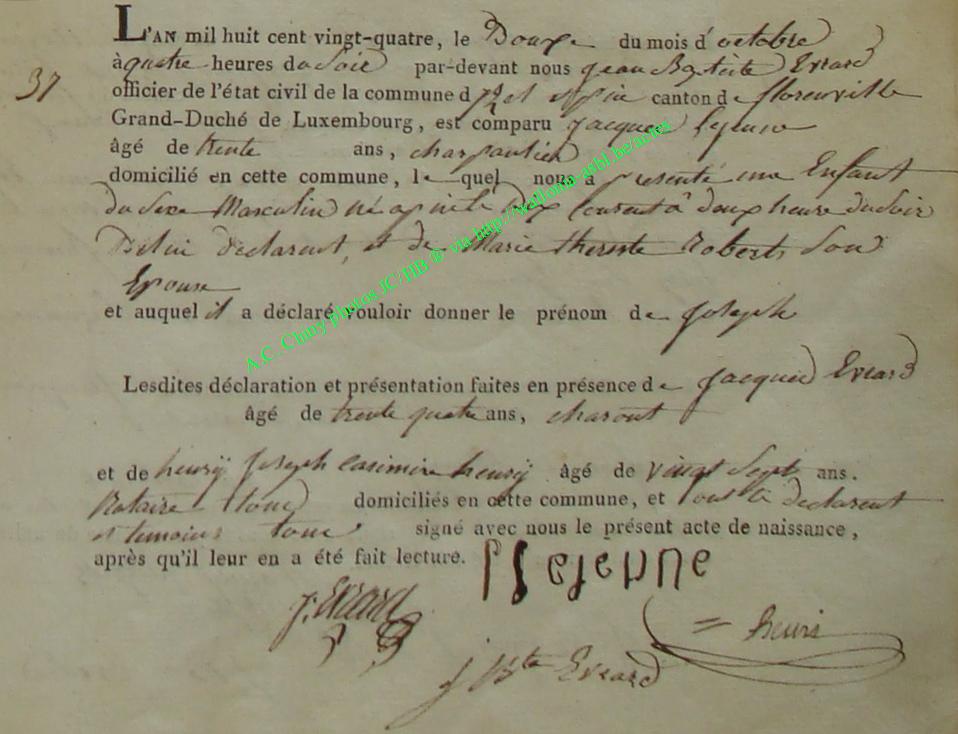 37
L'AN mil huit cent vingt-quatre, le Douze du mois d'octobre
à quatre heures du Soir par-devant nous jean Baptiste Evrard
officier de l'état civil de la commune d canton de florenville
Grand-Duché de Luxembourg, est comparu jacques Lejeune
âgé de trente ans, charpentier
domicilié en cette commune, le quel nous a presenté une Enfant
du Sexe Masculin né courent à deux heure du Soir
De lui declarent, et de Marie therese Roberts Son
Epouse
et auquel il a déclaré vouloir donner le prénom de joseph
Lesdites déclaration et présentation faites en présence de jacques Evrard
âgé de trente quatre ans, charont
et de henrÿ joseph casimire henrÿ âgé de vingt Sept ans.
Notaire tous domiciliés en cette commune, et tous le declarent
et temoins tous signé avec nous le présent acte de naissance,
après qu'il leur en a été fait lecture.
Lejeune
j: Evrard
henri
j Bte Evrard
A.C. Chiny photos JC/HB ® via http://wallonia-asbl.be/actes